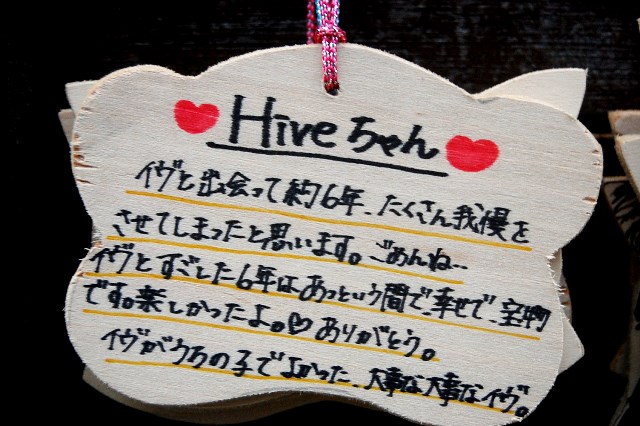 Hiveちゃん
イヴと出会って約6年、たくさん我慢を
させてしまったと思います。ごめんね…
イヴとすごした6年はあっという間で、幸せで、宝物
です。楽しかったよ。♡ありがとう。
イヴがウチの子でよかった、大事な大事なイヴ。